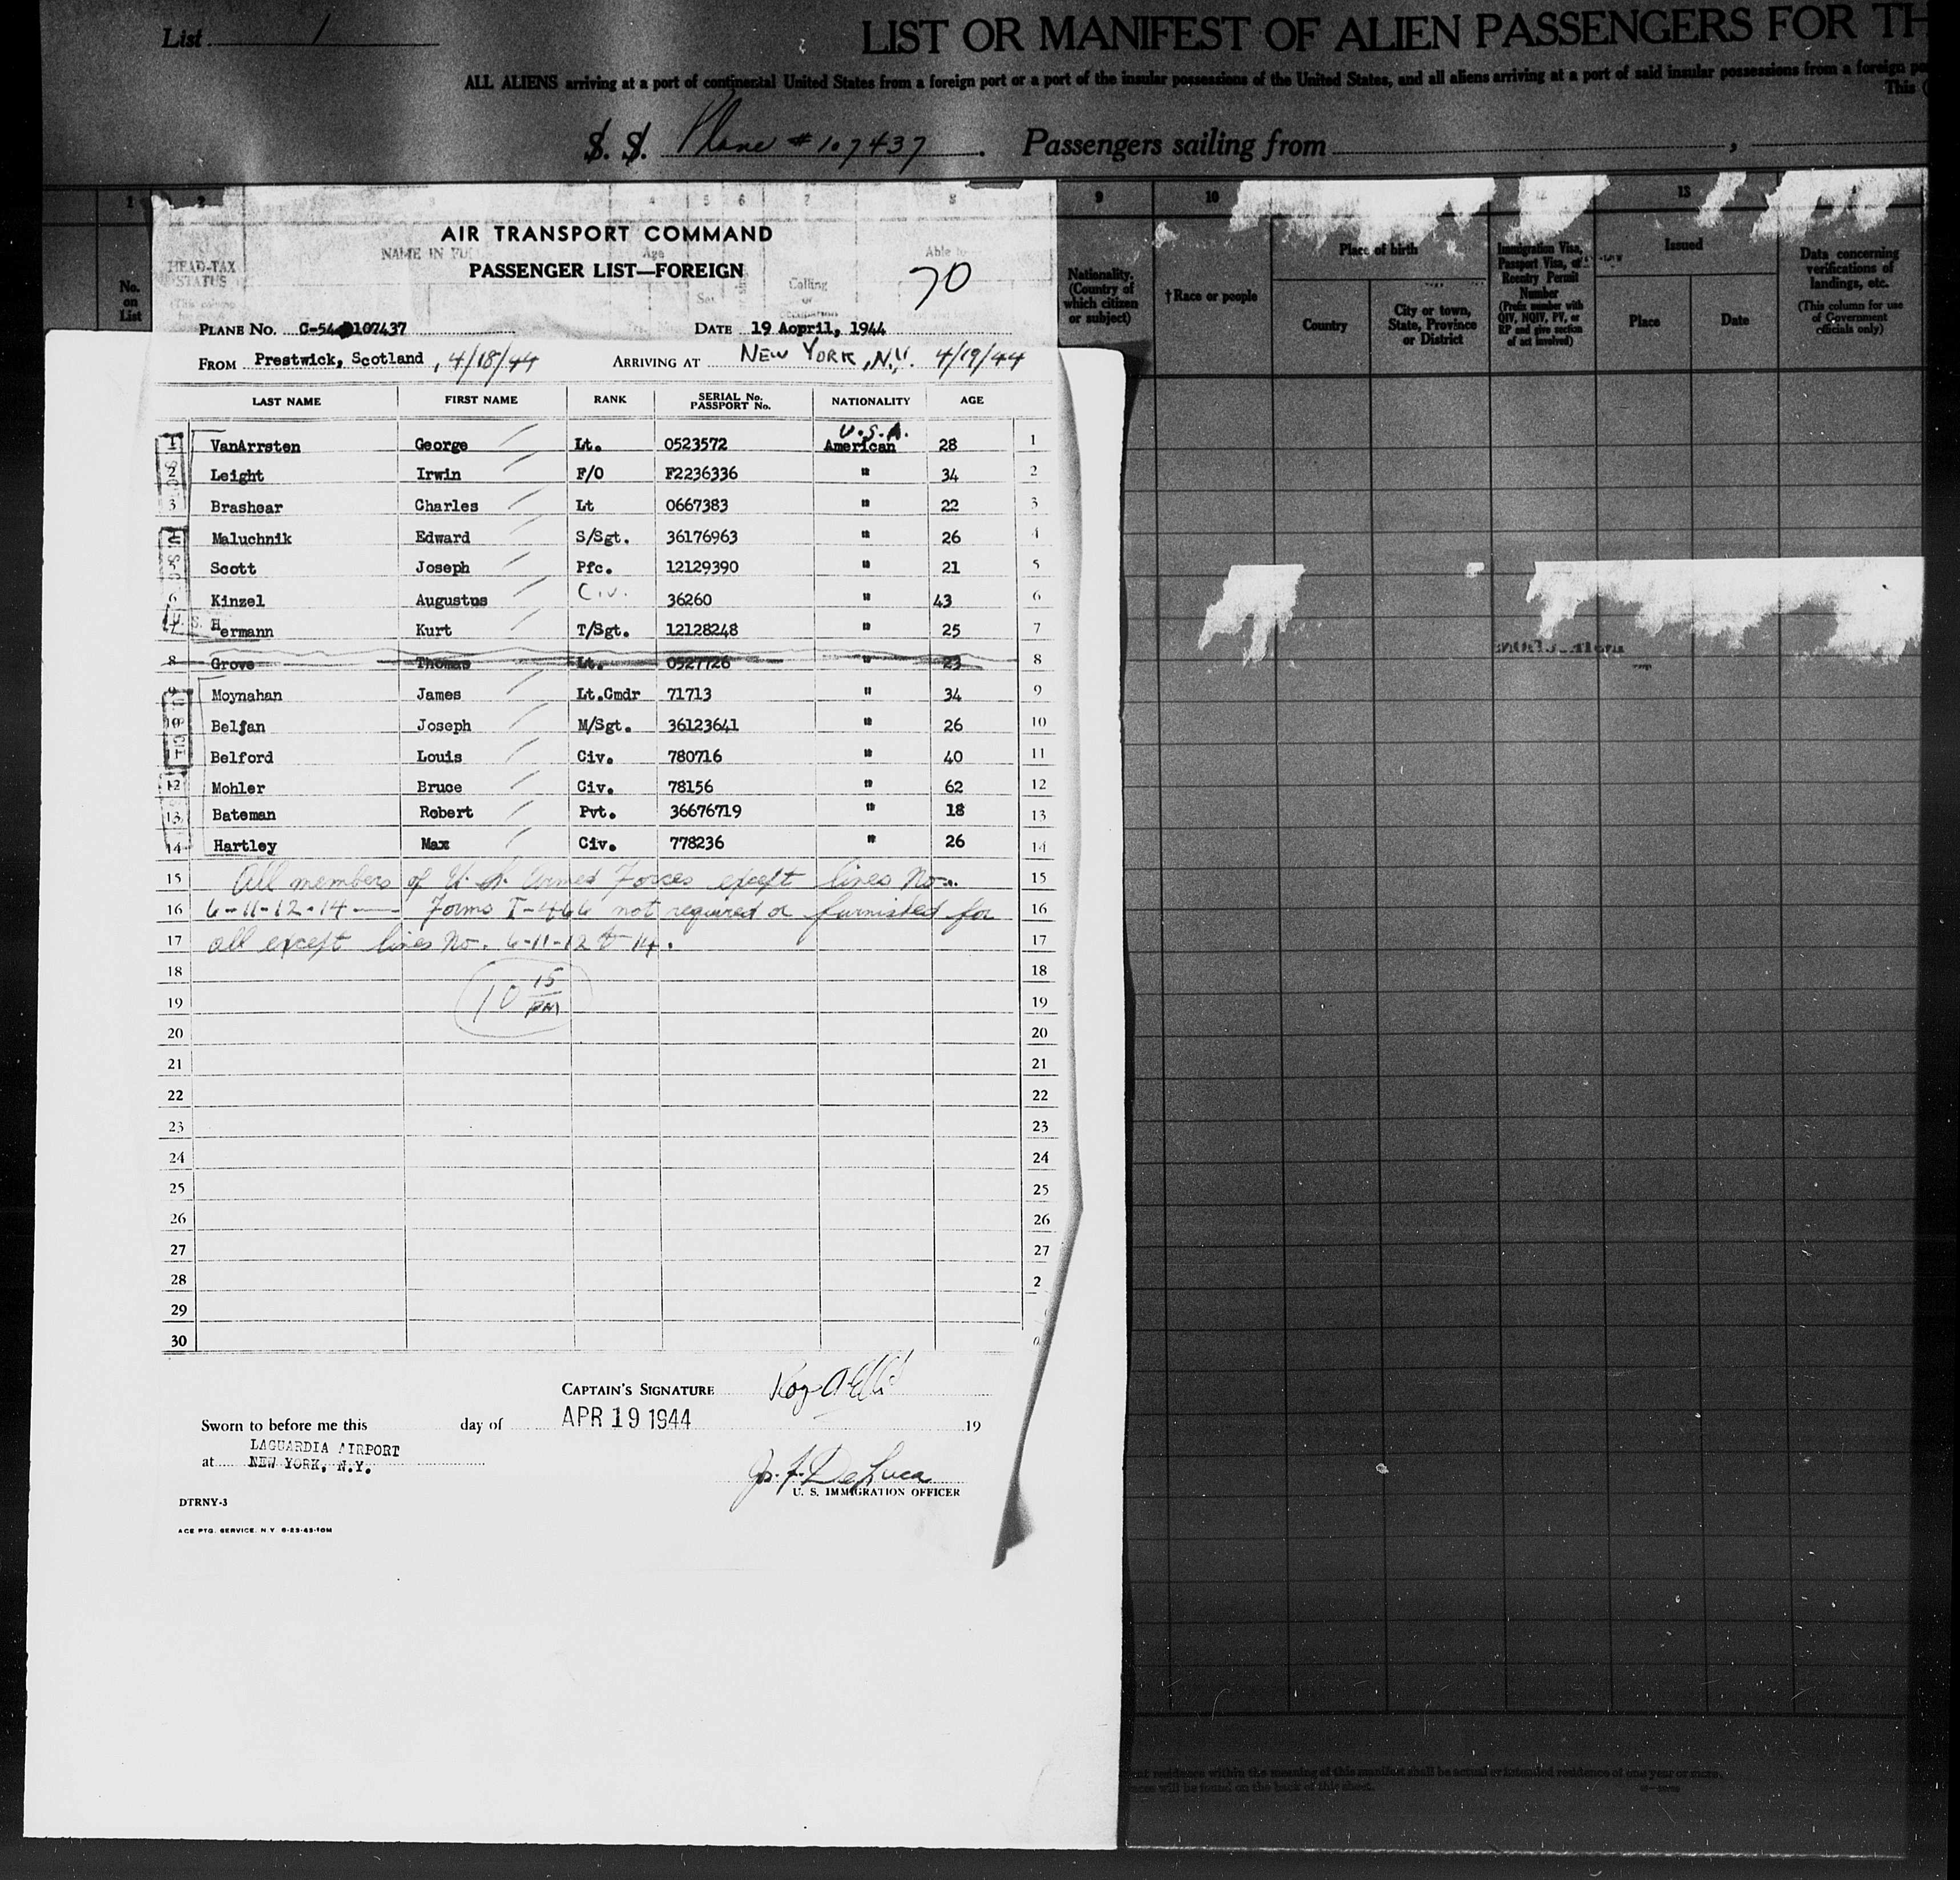 List 1
LIST OR MANIFEST OF ALIEN PASSENGERS FOR TH
ALL ALIENS arriving at a port of continental United States from a foreign port or a port of the insular possessions of the United States, and all aliens arriving at a port of said insular possessions from a foreign po
This (
S. S. Plane #107437. Passengers sailing from ,
1 2 3 4 5 6 7 8 9 10 13
AIR TRANSPORT COMMAND
PASSENGER LIST—FOREIGN
70
HEAD-TAX STATUS
NAME IN FU
Age
Calling
Able to
Sex
No. on List
Nationality. (Country of which citizen or subject)
†Race or people
Place of birth
Country
City or town, State, Province or District
Immigration Visa, Passport Visa, or Reentry Permit Number
(Prefix number with QIV, NQIV, PV, or RP and give section of act involved)
Issued
Place
Date
Data concerning verifications of landings, etc.
(This column for use of Government officials only)
PLANE NO. C-54 107437 DATE 19 Aopril, 1944
FROM Prestwick, Scotland, 4/18/44 ARRIVING AT NEW YORK, N.Y. 4/19/44
LAST NAME FIRST NAME RANK SERIAL No. PASSPORT No. NATIONALITY AGE
U.S.A.
1 VanArrsten George Lt. 0523572 American 28 1
2 Leight Irwin F/O F2236336 " 34 2
3 Brashear Charles Lt 0667383 " 22 3
Maluchnik Edward S/Sgt. 36176963 " 26 4
Scott Joseph Pfc. 12129390 " 21 5
6 Kinzel Augustus Civ. 36260 " 43 6
Hermann Kurt T/Sgt. 12128248 " 25 7
8 Grove Thomas Lt. 0527726 " 23 8
9 Moynahan James Lt.Cmdr 71713 " 34 9
10 Beljan Joseph M/Sgt. 36123641 " 26 10
11 Belford Louis Civ. 780716 " 40 11
12 Mohler Bruce Civ. 78156 " 62 12
13 Bateman Robert Pvt. 36676719 " 18 13
14 Hartley Max Civ. 778236 " 26 14
15 All members of U. S. Armed Forces except lines No. 15
16 6-11-12-14 — Forms I-466 not required or furnished for 16
17 all except lines No. 6-11-12 & 14. 17
18 18
10 15 PM
19 19
20 20
21 21
22 22
23 23
24 24
25 25
26 26
27 27
28 2
29
30 0
CAPTAIN'S SIGNATURE
Sworn to before me this day of APR 19 1944 19
at LAGUARDIA AIRPORT
NEW YORK, N.Y.
Jos. F. DeLuca
U. S. IMMIGRATION OFFICER
DTRNY-3
ACE PTG. SERVICE. N.Y. 8-23-43-10M
residence within the meaning of this manifest shall be actual or intended residence of one year or more.
will be found on the back of this sheet.